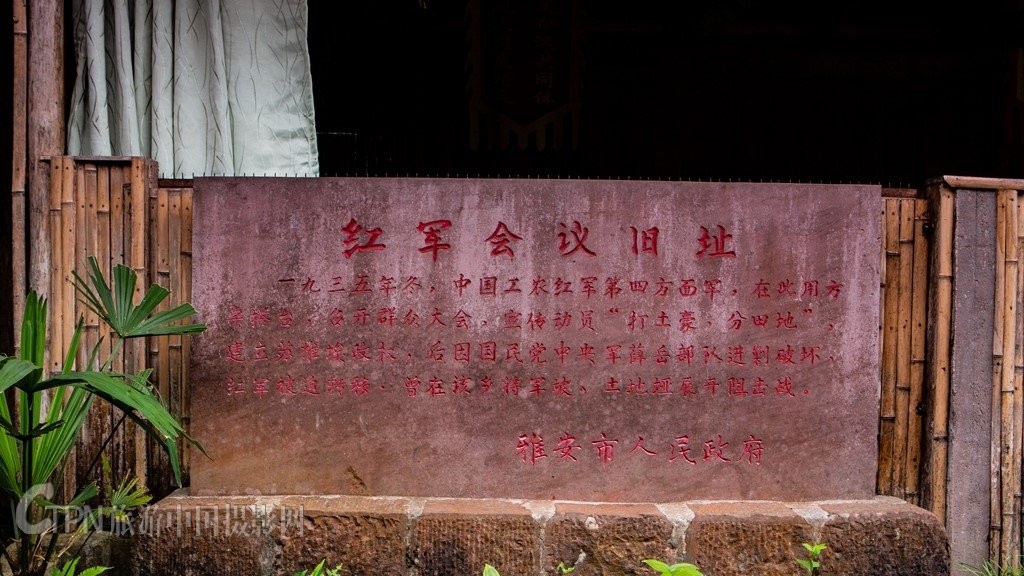 红军会议旧址
一九三五年冬，中国工农红军第四方面军，在此用方
桌搭台，召开群众大会，宣传动员“打土豪，分田地”，
建立苏维埃政权，后因国民党中央军薛岳部队进剿破坏，
红军被迫转移，曾在该乡将军坡、土地垭展开阻击战。
雅安市人民政府
CTPN旅游中国摄影网